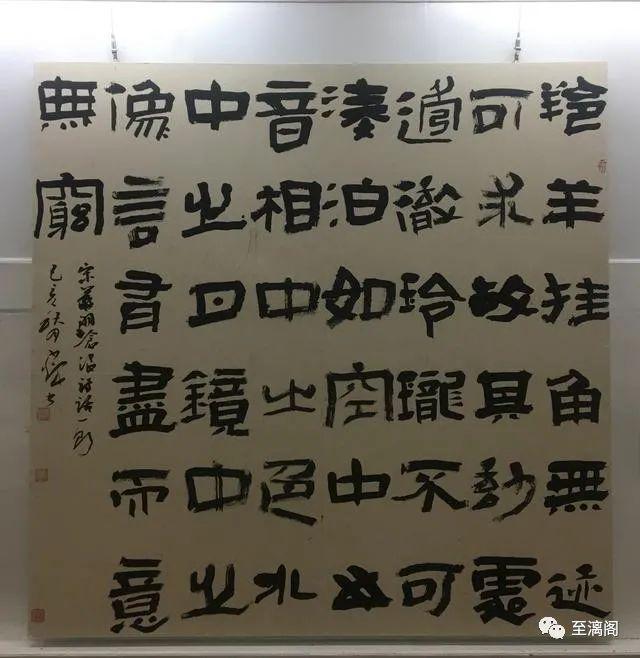 羚羊挂角無迹
可求故其妙處
透徹玲瓏不可
湊泊如空中之
音相中之色水
中之月鏡中之
像言有盡而意
無窮
宋嚴羽滄浪詩話一則
己亥
至漓阁